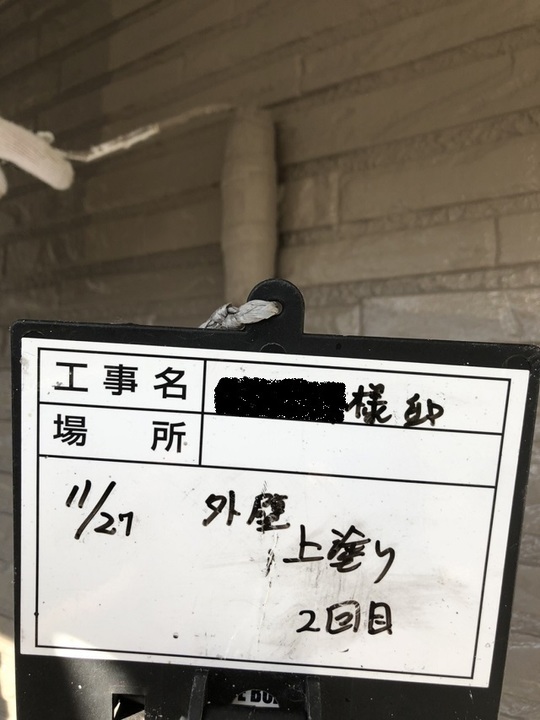 工事名 様邸
場所
11/27 外壁
上塗り
2回目